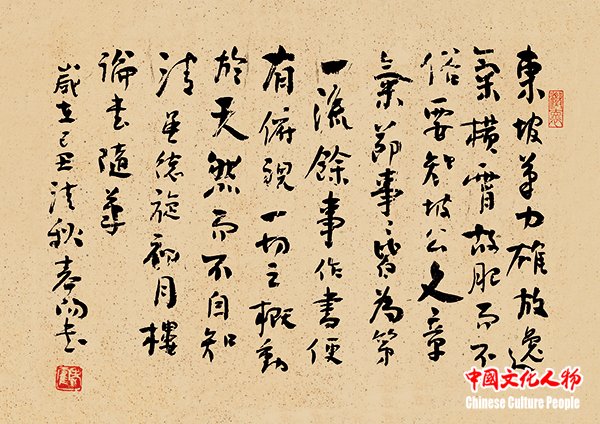 東坡筆力雄放逸
氣橫霄故肥而不
俗要知坡公文章
氣節事〻皆為第
一流餘事作書便
有俯視一切之概動
於天然而不自知
清吳德旋初月樓
論書隨筆
歲在己丑清秋書
中國文化人物
Chinese Culture People